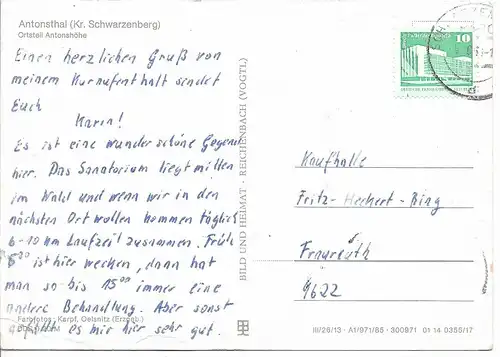 Antonsthal (Kr. Schwarzenberg)
Ortsteil Antonshöhe
Einen herzlichen Gruß von
meinem Kuraufenthalt sendet
Euch
Karin!
Es ist eine wunderschöne Gegend
hier. Das Sanatorium liegt mitten
im Wald und wenn wir in den
nächsten Ort wollen kommen täglich
6-10 km Laufzeit zusammen. Früh
6⁰⁰ ist hier wecken, dann hat
man so bis 15⁰⁰ immer eine
andere Behandlung. Aber sonst
gefällt es mir hier sehr gut.
Farbfotos: Karpf, Oelsnitz (Erzgeb.)
BILD UND HEIMAT · REICHENBACH (VOGTL)
10
Kaufhalle
Fritz-Heckert-Ring
Fraureuth
9622
III/26/13 · A1/971/85 · 300971 01 14 0356/17